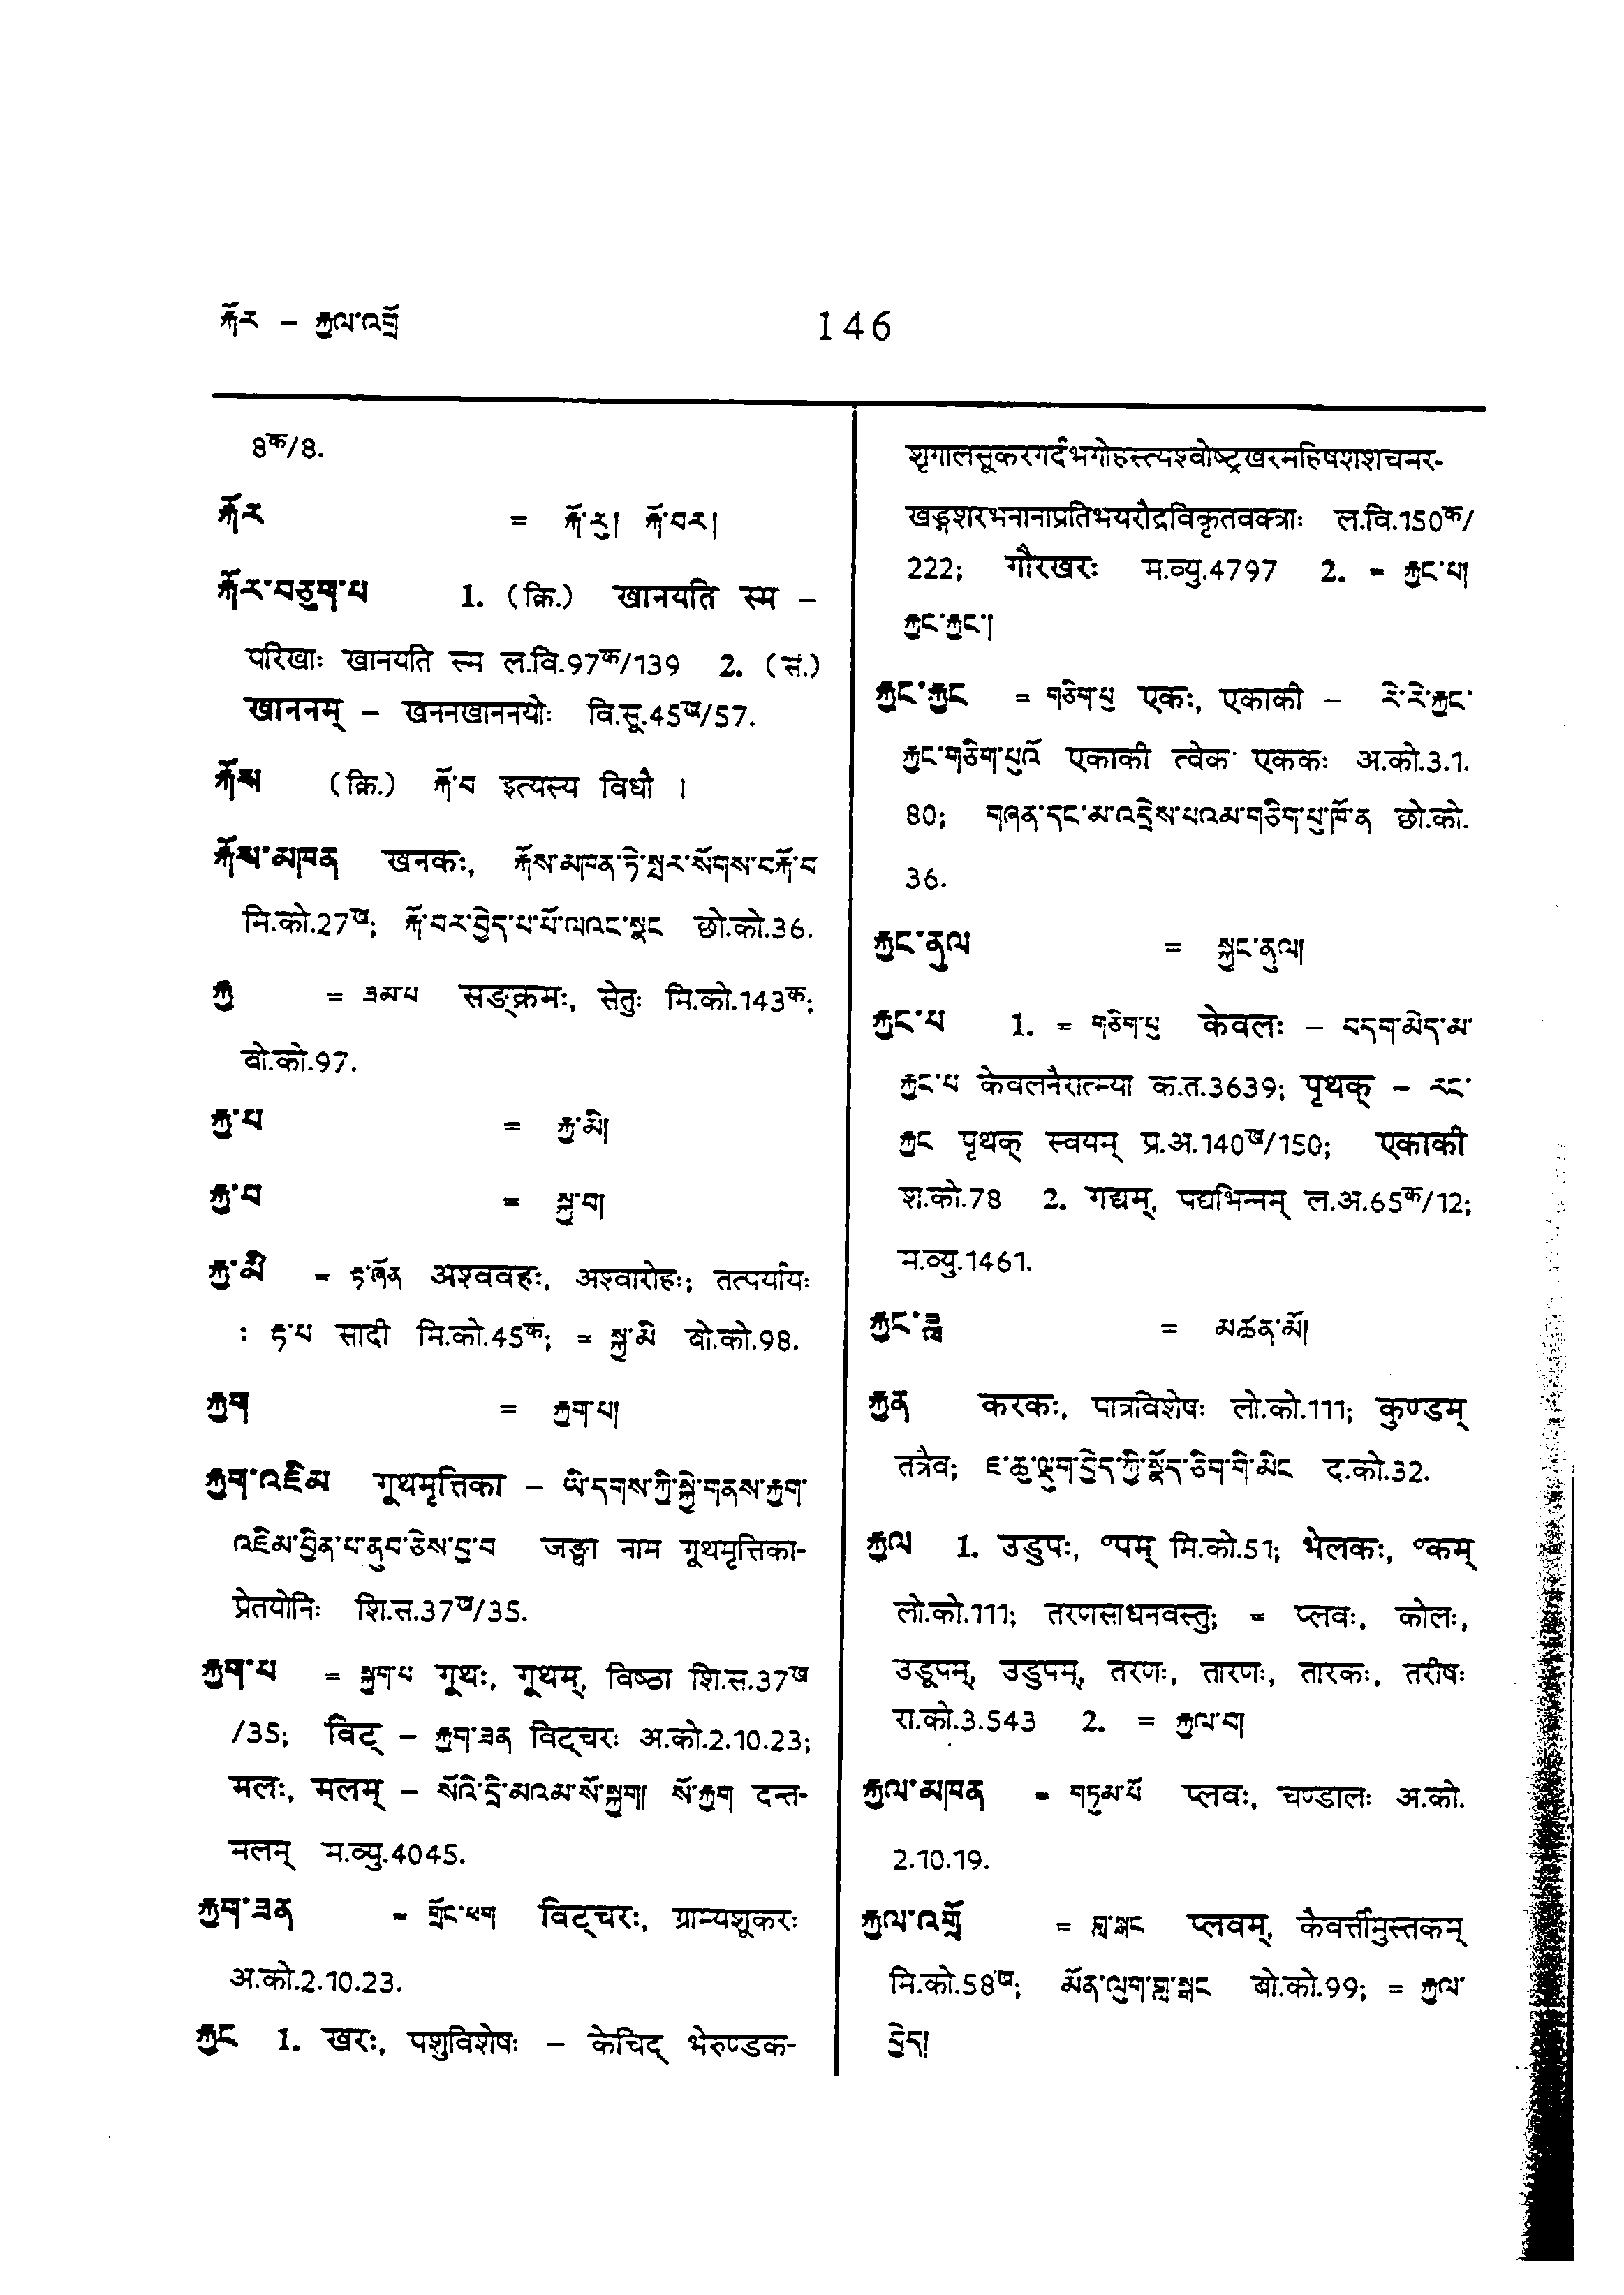 རྐོར – རྐྱལ་འགྲོ
146
8क/8.
རྐོར = རྐོ་རུ། རྐོ་བར།
རྐོར་བཅུག་པ 1. (क्रि.) खानयति स्म –
परिखाः खानयति स्म ल.वि.97क/139 2. (सं.)
खाननम् – खननखाननयोः वि.सू.45ख/57.
རྐོས (क्रि.) རྐོ་བ इत्यस्य विधौ ।
རྐོས་མཁན खनकः, རྐོས་མཁན་ཏེ་སྤར་སོགས་བརྐོ་བ
मि.को.27ख; རྐོ་བར་བྱེད་པ་པོ་ལའང་སྣང छो.को.36.
རྐྱ = ཟམ་པ सङ्क्रमः, सेतुः मि.को.143क;
बो.को.97.
རྐྱ་པ = རྐྱ་མི།
རྐྱ་བ = སྐྱ་བ།
རྐྱ་མི = རྟ་ཞོན अश्ववहः, अश्वारोहः; तत्पर्यायः
: རྟ་པ सादी मि.को.45क; = སྐྱ་མི बो.को.98.
རྐྱག = རྐྱག་པ།
རྐྱག་འཇིམ गूथमृत्तिका – ཡི་དགས་ཀྱི་སྐྱེ་གནས་རྐྱག་
འཇིམ་བྱིན་པ་ནུབ་ཅེས་བྱ་བ जङ्घा नाम गूथमृत्तिका-
प्रेतयोनिः शि.स.37ख/35.
རྐྱག་པ = སྐྱག་པ गूथः, गूथम्, विष्ठा शि.स.37ख
/35; विट् – རྐྱག་ཟན विट्चरः अ.को.2.10.23;
मलः, मलम् – སོའི་དྲི་མའམ་སོ་སྐྱག། སོ་རྐྱག दन्त-
मलम् म.व्यु.4045.
རྐྱག་ཟན = གྲོང་ཕག विट्चरः, ग्राम्यशूकरः
अ.को.2.10.23.
རྐྱང 1. खरः, पशुविशेषः – केचिद् भेरुण्डक-
शृगालसूकरगर्दभगोहस्त्यश्वोष्ट्रखरमहिषशशचमर-
खड्गशरभनानाप्रतिभयरौद्रविकृतवक्त्राः ल.वि.150क/
222; गौरखरः म.व्यु.4797 2. = རྐྱང་པ།
རྐྱང་རྐྱང་།
རྐྱང་རྐྱང = གཅིག་པུ एकः, एकाकी – རེ་རེ་རྐྱང་
རྐྱང་གཅིག་པུའོ एकाकी त्वेक एककः अ.को.3.1.
80; གཞན་དང་མ་འདྲེས་པའམ་གཅིག་པུ་ཁོ་ན छो.को.
36.
རྐྱང་ནུལ = སྐྱང་ནུལ།
རྐྱང་པ 1. = གཅིག་པུ केवलः – བདག་མེད་མ་
རྐྱང་པ केवलनैरात्म्या क.त.3639; पृथक् – རང་
རྐྱང पृथक् स्वयम् प्र.अ.140ख/150; एकाकी
श.को.78 2. गद्यम्, पद्यभिन्नम् ल.अ.65क/12;
म.व्यु.1461.
རྐྱང་ཟླ = མཚན་མོ།
རྐྱན करकः, पात्रविशेषः लो.को.111; कुण्डम्
तत्रैव; ཇ་ཆུ་ལྡུག་བྱེད་ཀྱི་སྣོད་ཅིག་གི་མིང द.को.32.
རྐྱལ 1. उडुपः, ॰पम् मि.को.51; भेलकः, ॰कम्
लो.को.111; तरणसाधनवस्तु; = प्लवः, कोलः,
उडूपम्, उडुपम्, तरणः, तारणः, तारकः, तरीषः
रा.को.3.543 2. = རྐྱལ་བ།
རྐྱལ་མཁན = གཏུམ་པོ प्लवः, चण्डालः अ.को.
2.10.19.
རྐྱལ་འགྲོ = གླ་སྒང प्लवम्, कैवर्त्तीमुस्तकम्
मि.को.58ख; མོན་ལུག་གླ་སྒང बो.को.99; = རྐྱལ་
བྱེད།